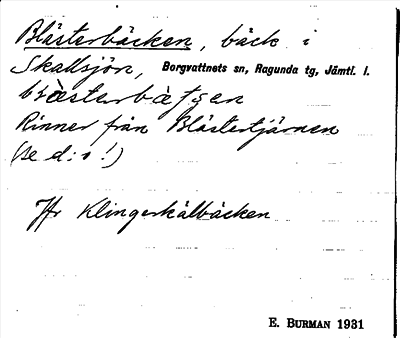 Blästerbäcken, bäck i
Skallsjön, Borgvattnets sn, Ragunda tg, Jämtl. l.
blæ̀sterbæ̀tʃen
Rinner från Blästertjärnen
(se d:o!)
Jfr Klingerkälbäcken
E. BURMAN 1931